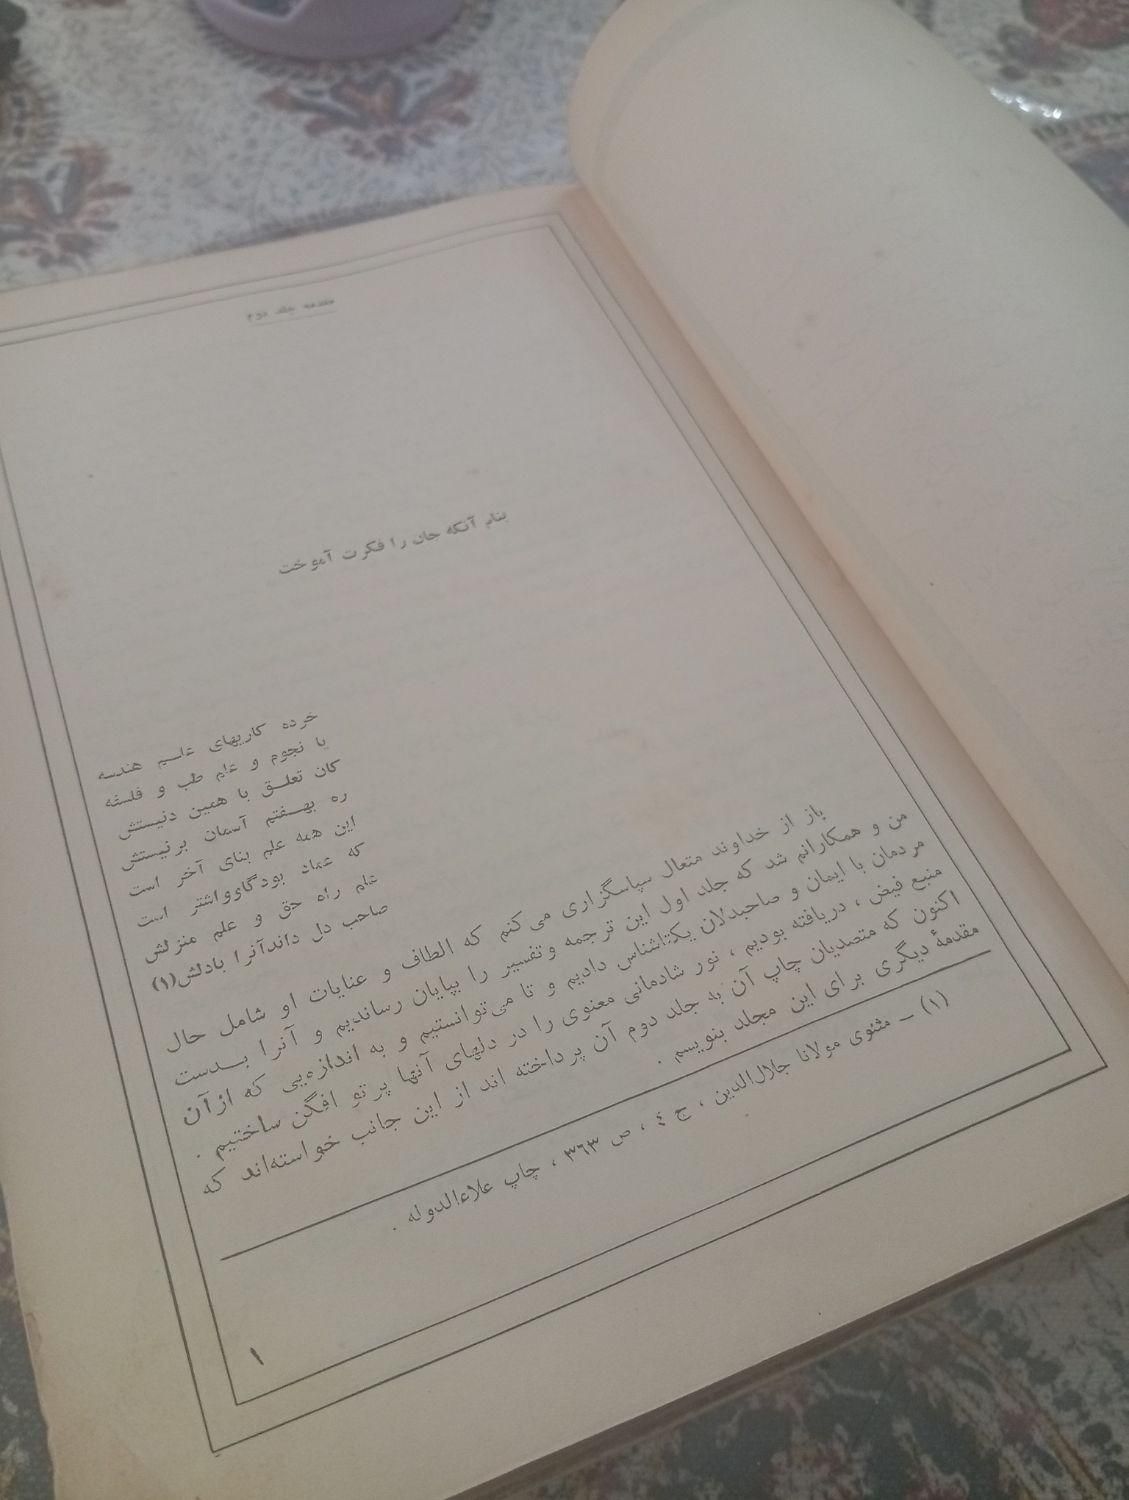 مقدمه جلد دوم
بنام آنکه جان را فکرت آموخت
خرده کاریهای علـم هندسه
یا نجوم و علم طب و فلسفه
کان تعلـق با همین دنیستش
ره بهـفتم آسمان برنیستش
این همه علم بنای آخر است
که عماد بودگاوواشتر است
علم راه حق و علم منزلش
صاحب دل داندآنرا بادلش(۱)
باز از خداوند متعال سپاسگزاری می‌کنم که الطاف و عنایات او شامل حال
من و همکارانم شد که جلد اول این ترجمه وتفسیر را بپایان رساندیم و آنرا بـدست
مردمان با ایمان و صاحبدلان یکتاشناس دادیم و تا می‌توانستیم و به اندازه‌یی که ازآن
منبع فیض ، دریافته بودیم ، نور شادمانی معنوی را در دلهای آنها پرتو افگن ساختیم .
اکنون که متصدیان چاپ آن به جلد دوم آن پرداخته اند از این جانب خواسته‌اند که
مقدمهٔ دیگری برای این مجلد بنویسم .
(۱) – مثنوی مولانا جلال‌الدین ، ج ٤ ، ص ۳٦۳ ، چاپ علاءالدوله .
۱